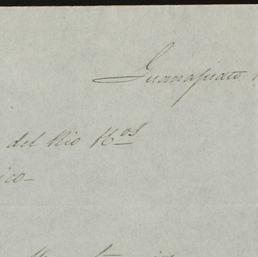 Guanajuato
del Rio H.os
ico_